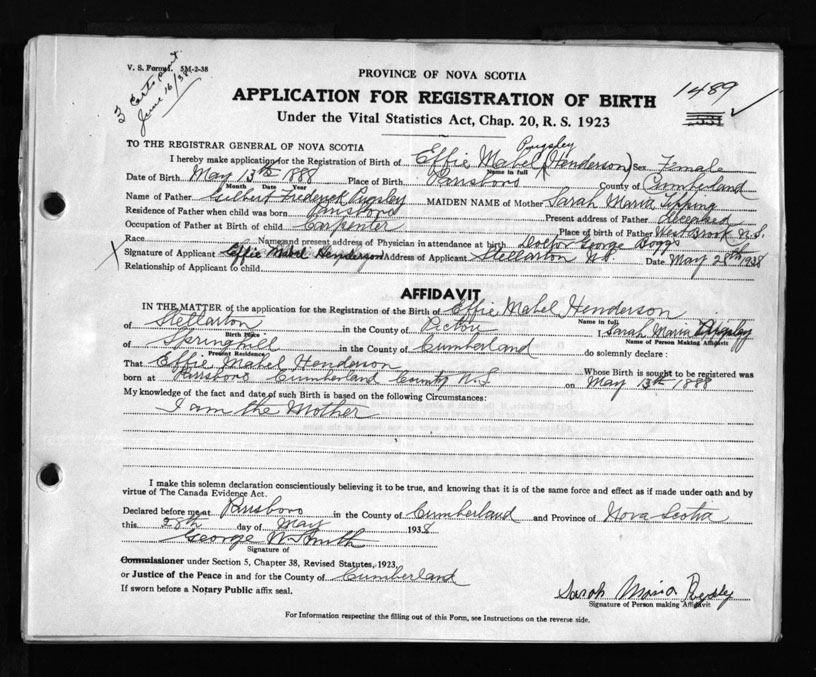 V. S. Form 1. 5M-2-38
3 Certs sent
June 16/38
PROVINCE OF NOVA SCOTIA
1489
APPLICATION FOR REGISTRATION OF BIRTH
Under the Vital Statistics Act, Chap. 20, R. S. 1923
TO THE REGISTRAR GENERAL OF NOVA SCOTIA
Pugsley
I hereby make application for the Registration of Birth of Effie Mabel (Henderson) Sex Female
Name in full
Date of Birth May 13th 1888 Place of Birth Parrsboro County of Cumberland
Month Date Year
Name of Father Gilbert Frederick Pugsley MAIDEN NAME of Mother Sarah Maria Tipping
Residence of Father when child was born Parrsboro Present address of Father Deceased
Occupation of Father at Birth of Child Carpenter Place of Birth of Father West Brook N.S.
Race Name and present address of Physician in attendance at birth Doctor George Boggs
X Signature of Applicant Effie Mabel Henderson Address of Applicant Stellarton N.S. Date May 28th 1938
Relationship of Applicant to child
AFFIDAVIT
IN THE MATTER of the application for the Registration of the Birth of Effie Mabel Henderson
Name in full
of Stellarton in the County of Pictou I, Sarah Maria Pugsley
Birth Place Name of Person Making Affidavit
of Springhill in the County of Cumberland do solemnly declare :
Present Residence
That Effie Mabel Henderson Whose Birth is sought to be registered was
born at Parrsboro Cumberland County N.S. on May 13th 1888
My knowledge of the fact and date of such Birth is based on the following Circumstances:
I am the Mother
I make this solemn declaration conscientiously believing it to be true, and knowing that it is of the same force and effect as if made under oath and by
virtue of The Canada Evidence Act.
Declared before me at Parrsboro in the County of Cumberland and Province of Nova Scotia
this 28th day of May 1938
George W Smith
Signature of
Commissioner under Section 5, Chapter 38, Revised Statutes, 1923,
or Justice of the Peace in and for the County of Cumberland
If sworn before a Notary Public affix seal.
Sarah Maria Pugsley
Signature of Person making Affidavit
For Information respecting the filling out of this Form, see Instructions on the reverse side.